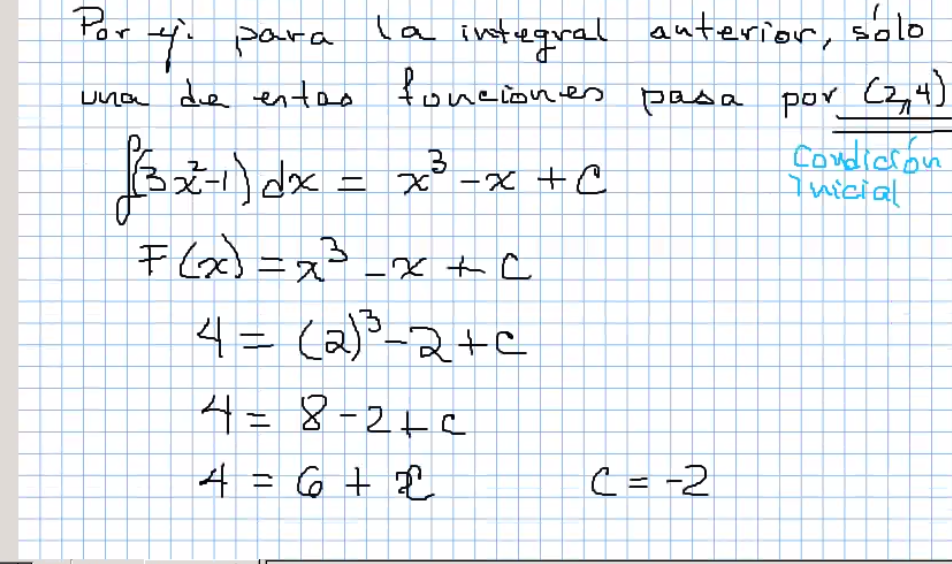 Por ej. para la integral anterior, sólo
una de estas funciones pasa por (2,4)
Condición
Inicial
∫(3x²-1)dx = x³ - x + C
F(x) = x³ - x + C
4 = (2)³ - 2 + C
4 = 8 - 2 + C
4 = 6 + C    C = -2